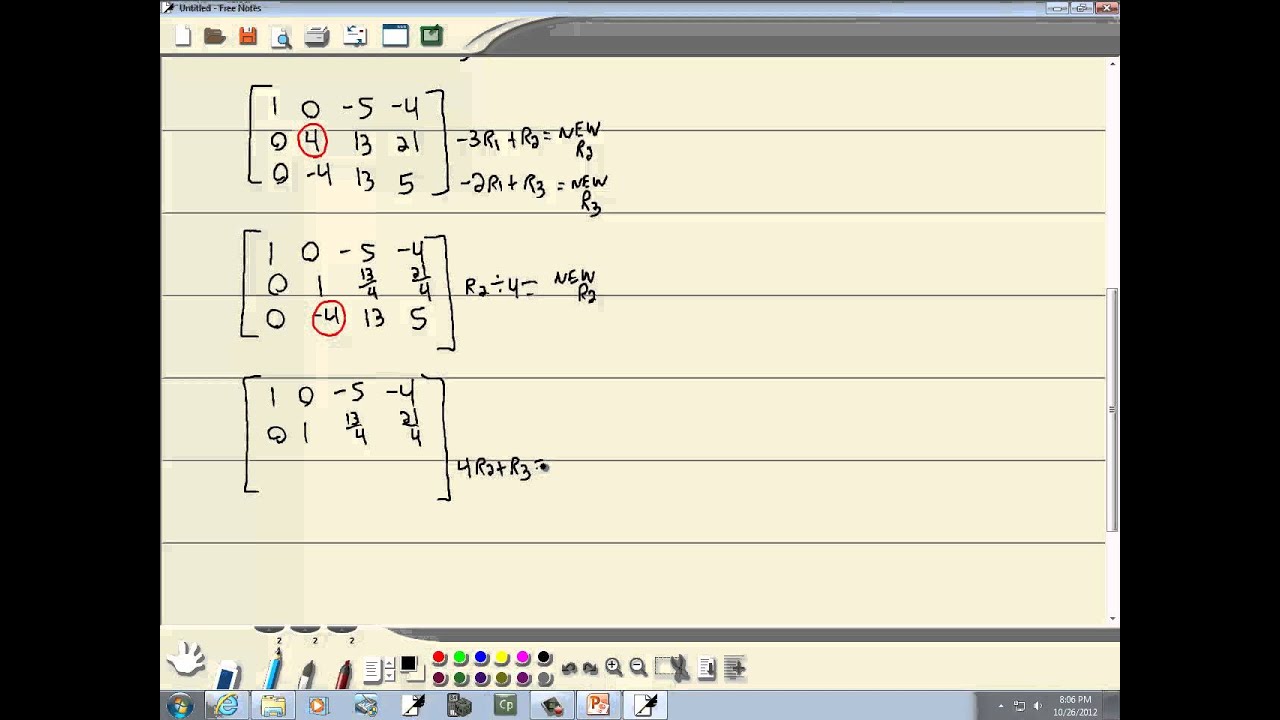 Untitled - Free Notes
1 0 -5 -4
0 4 13 21 -3R1 + R2 = NEW R2
0 -4 13 5 -2R1 + R3 = NEW R3
1 0 -5 -4
0 1 13/4 21/4 R2 ÷ 4 = NEW R2
0 -4 13 5
1 0 -5 -4
0 1 13/4 21/4
4R2 + R3 =
2 2 2
Cp
8:06 PM
10/26/2012